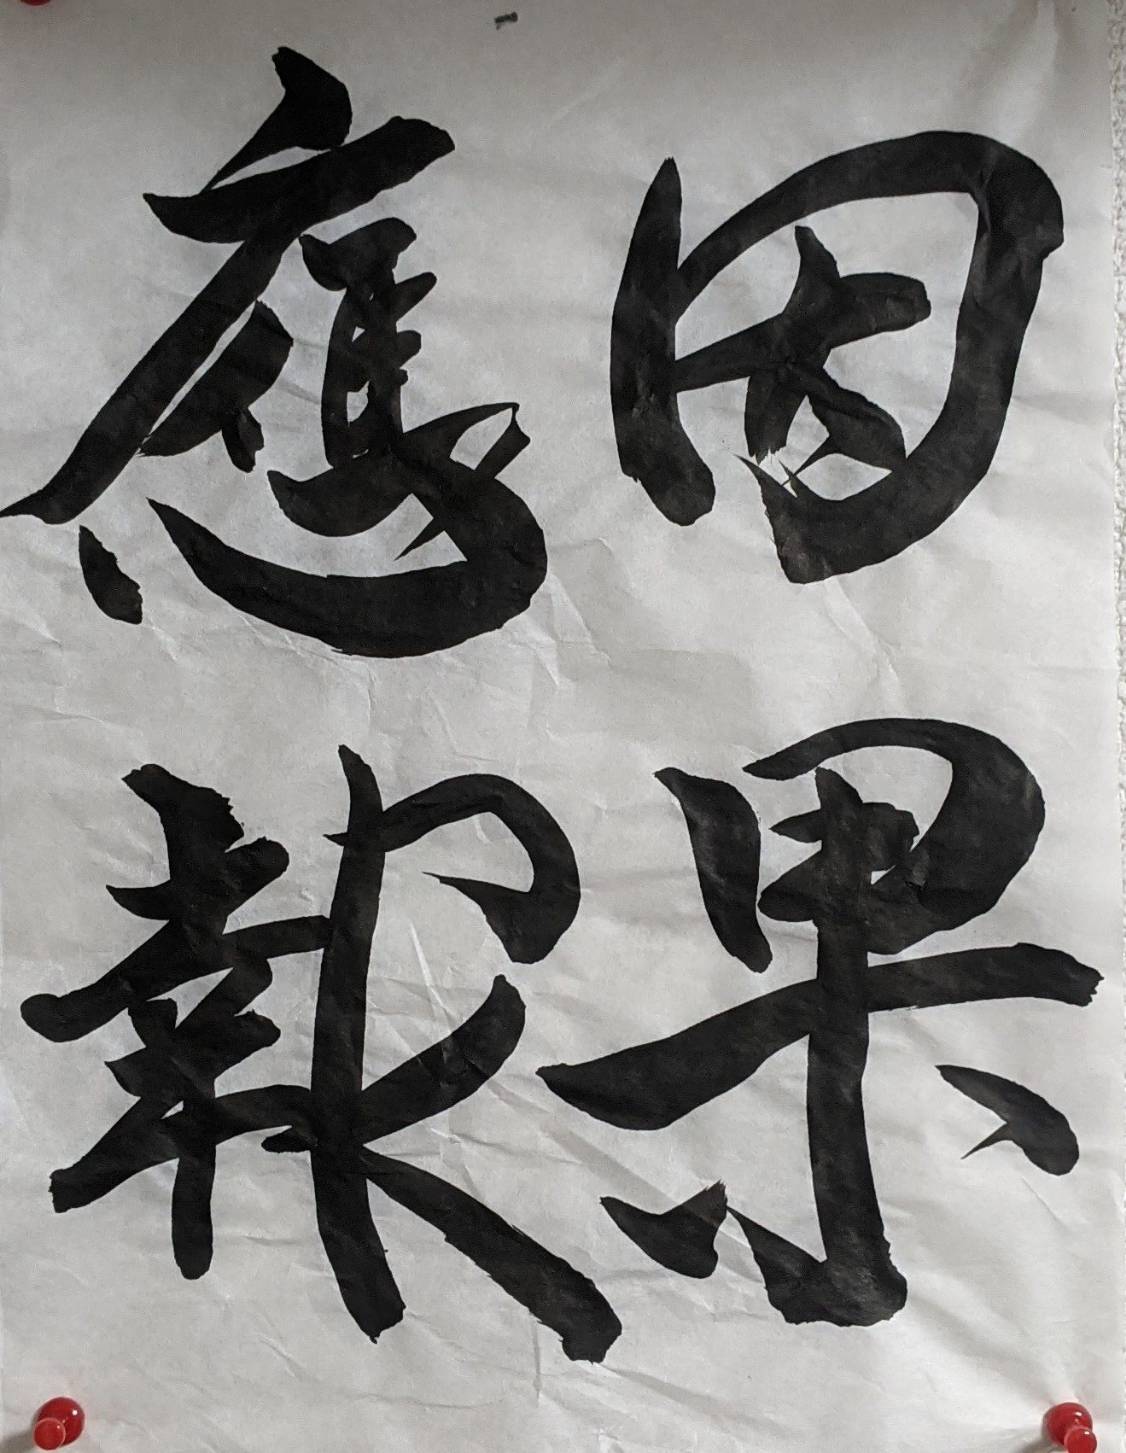 因果
應報